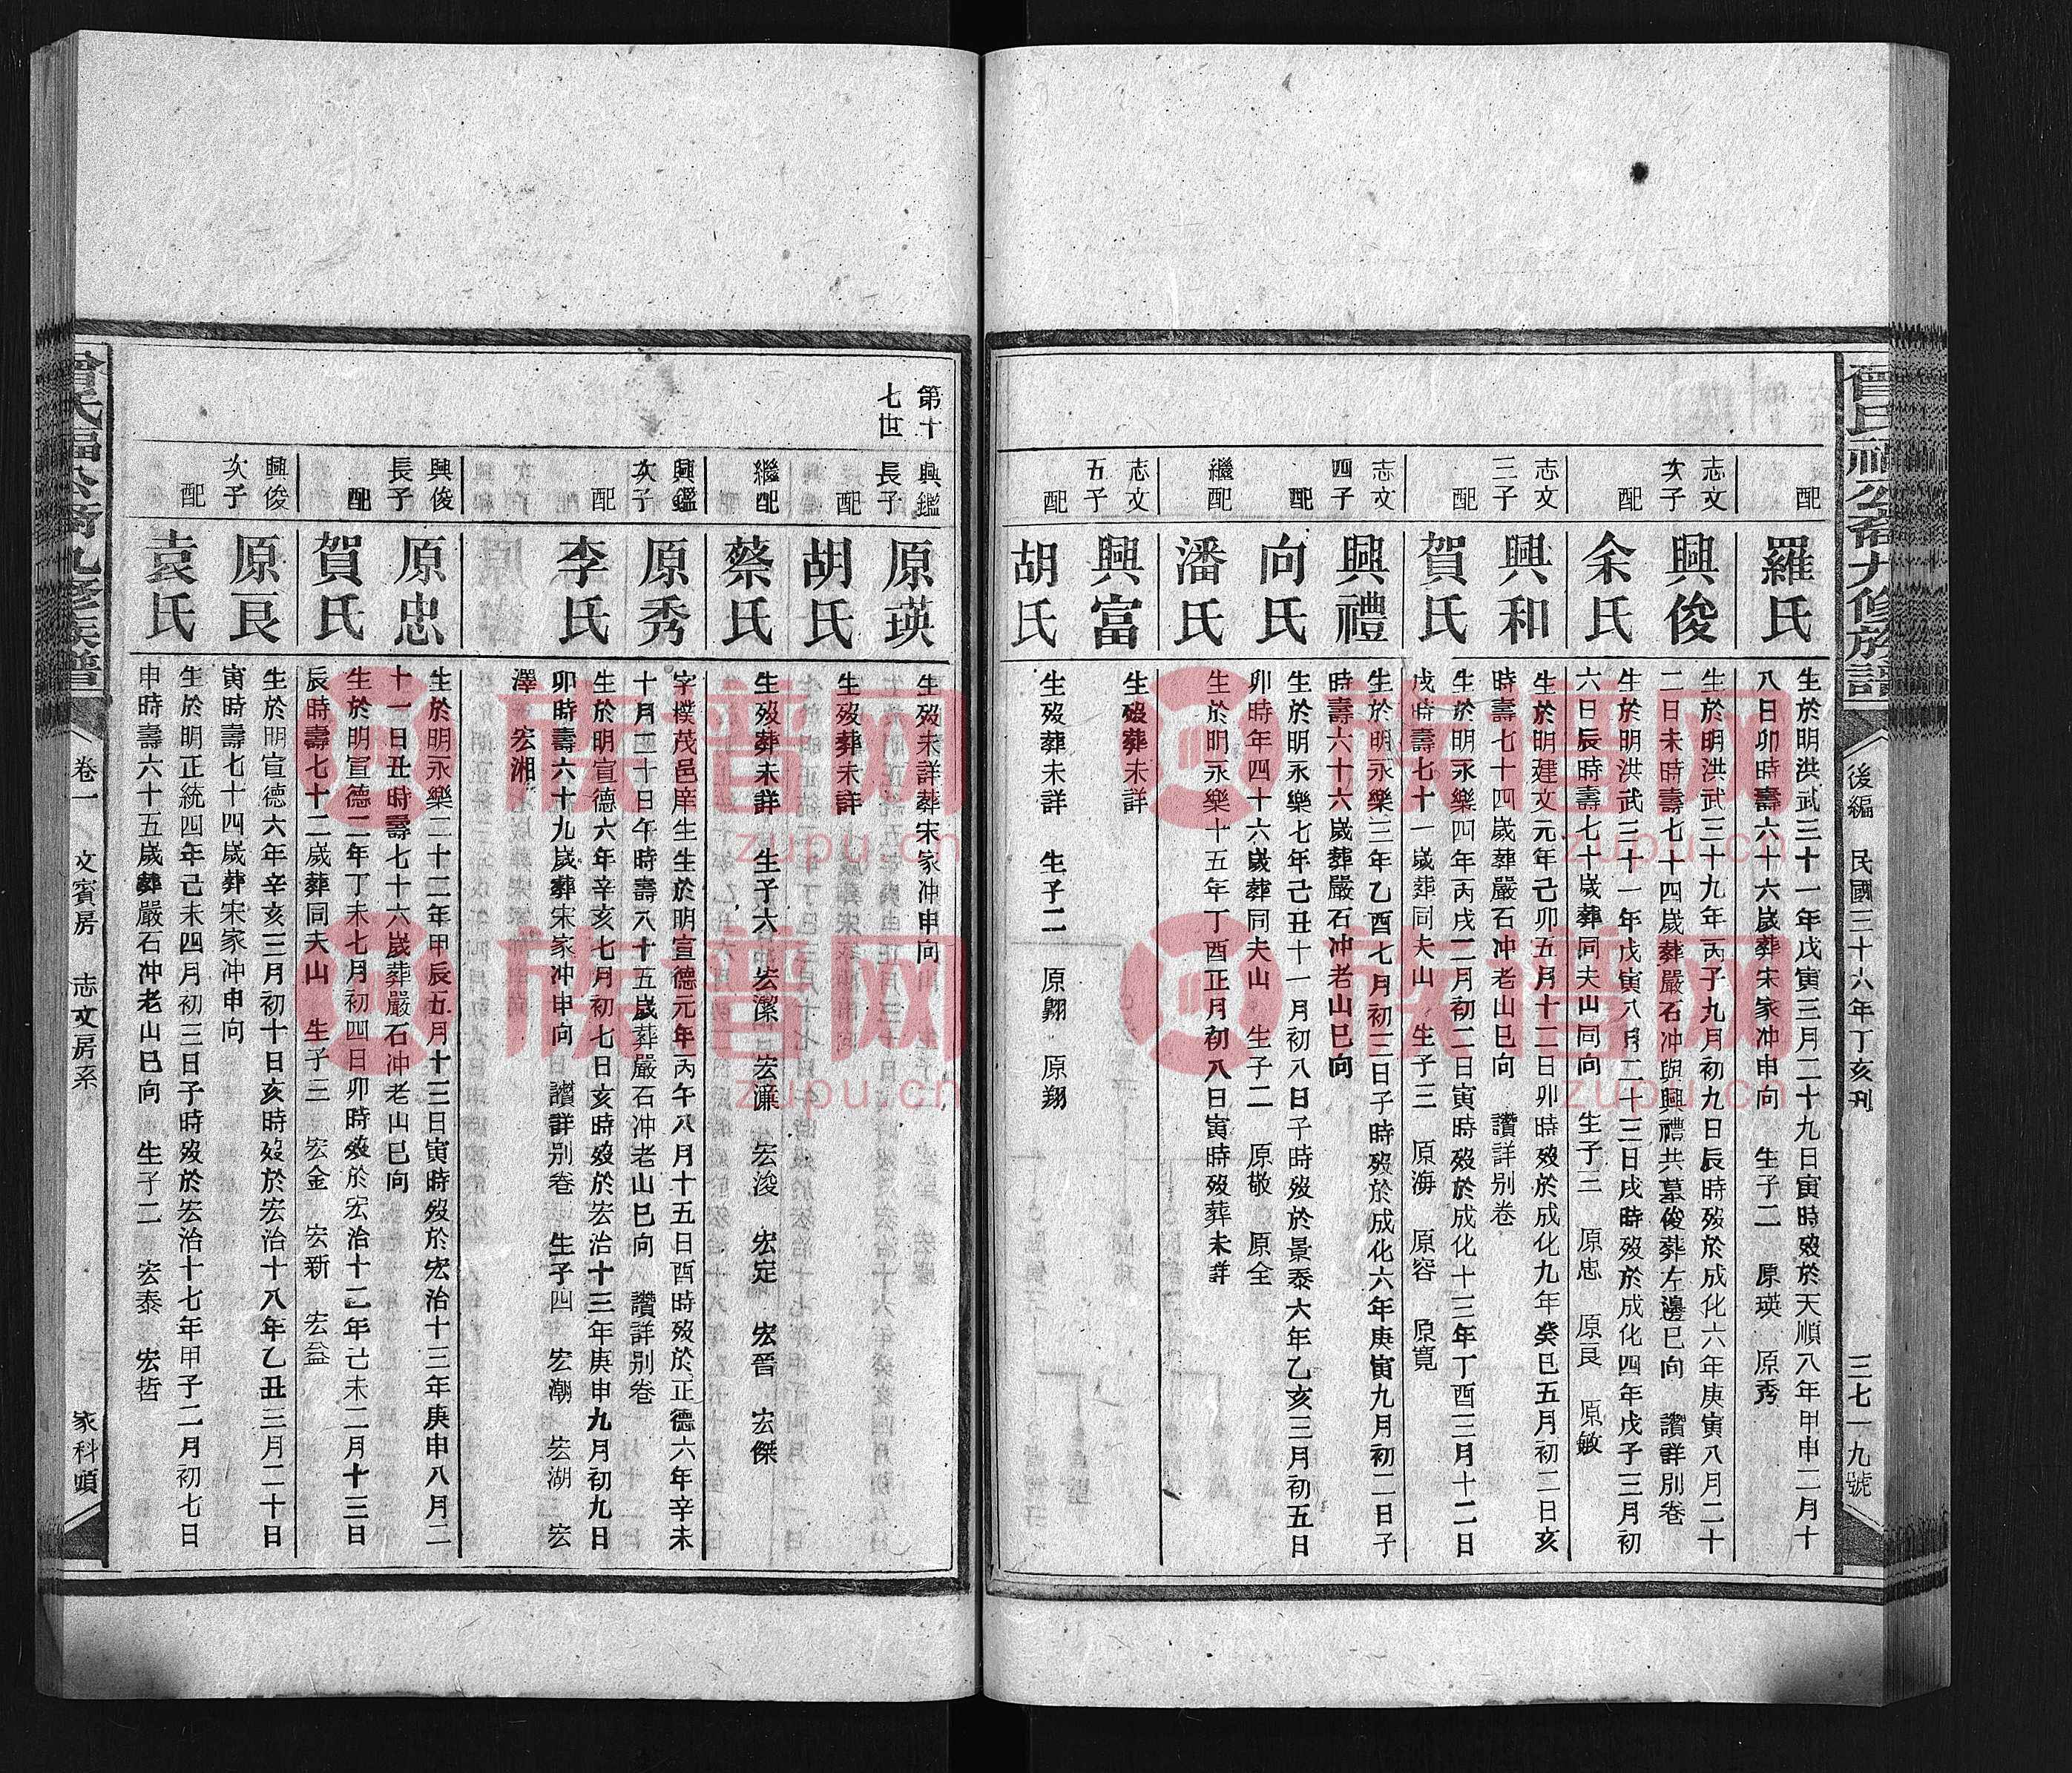 曾氏福公裔九修族譜
後編 民國三十六年丁亥刋
三七一九號
配
羅氏
生於明洪武三十一年戊寅三月二十九日寅時歿於天順八年甲申二月十
八日卯時壽六十六歲葬宋家冲申向 生子二 原瑛 原秀
志文
次子
興俊
生於明洪武三十九年丙子九月初九日辰時歿於成化六年庚寅八月二十
二日未時壽七十四歲葬嚴石冲與興禮共墓俊葬左邊巳向 讚詳別卷
配
余氏
生於明洪武三十一年戊寅八月二十三日戌時歿於成化四年戊子三月初
六日辰時壽七十歲葬同夫山同向 生子三 原忠 原良 原敏
志文
三子
興和
生於明建文元年己卯五月十二日卯時歿於成化九年癸巳五月初二日亥
時壽七十四歲葬嚴石冲老山巳向 讚詳別卷
配
賀氏
生於明永樂四年丙戌二月初二日寅時歿於成化十三年丁酉三月十二日
戌時壽七十一歲葬同夫山 生子三 原海 原容 原寬
志文
四子
興禮
生於明永樂三年乙酉七月初三日子時歿於成化六年庚寅九月初二日子
時壽六十六歲葬嚴石冲老山巳向
配
向氏
生於明永樂七年己丑十一月初八日子時歿於景泰六年乙亥三月初五日
卯時年四十六歲葬同夫山 生子二 原敬 原全
繼配
潘氏
生於明永樂十五年丁酉正月初八日寅時歿葬未詳
志文
五子
興富
生歿葬未詳
配
胡氏
生歿葬未詳 生子二 原翺 原翔
第十
七世
興鑑
長子
原瑛
生歿未詳葬宋家冲申向
配
胡氏
生歿葬未詳
繼配
蔡氏
生歿葬未詳 生子六 宏潔 宏濂 宏浚 宏定 宏晉 宏傑
興鑑
次子
原秀
字樸茂邑庠生生於明宣德元年丙午八月十五日酉時歿於正德六年辛未
十月二十日午時壽八十五歲葬嚴石冲老山巳向 讚詳別卷
配
李氏
生於明宣德六年辛亥七月初七日亥時歿於宏治十三年庚申九月初九日
卯時壽六十九歲葬宋家冲申向 讚詳別卷 生子四 宏潮 宏湖 宏
澤 宏湘
興俊
長子
原忠
生於明永樂二十二年甲辰五月十三日寅時歿於宏治十三年庚申八月二
十一日丑時壽七十六歲葬嚴石冲老山巳向
配
賀氏
生於明宣德二年丁未七月初四日卯時歿於宏治十二年己未二月十三日
辰時壽七十二歲葬同夫山 生子三 宏金 宏新 宏益
興俊
次子
原良
生於明宣德六年辛亥三月初十日亥時歿於宏治十八年乙丑三月二十日
寅時壽七十四歲葬宋家冲申向
配
袁氏
生於明正統四年己未四月初三日子時歿於宏治十七年甲子二月初七日
申時壽六十五歲葬嚴石冲老山巳向 生子二 宏泰 宏哲
曾氏福公裔九修族譜
卷一 文賓房 志文房系
家科頭
族譜网
zupu.cn
族譜网
zupu.cn
族譜网
zupu.cn
族譜网
zupu.cn